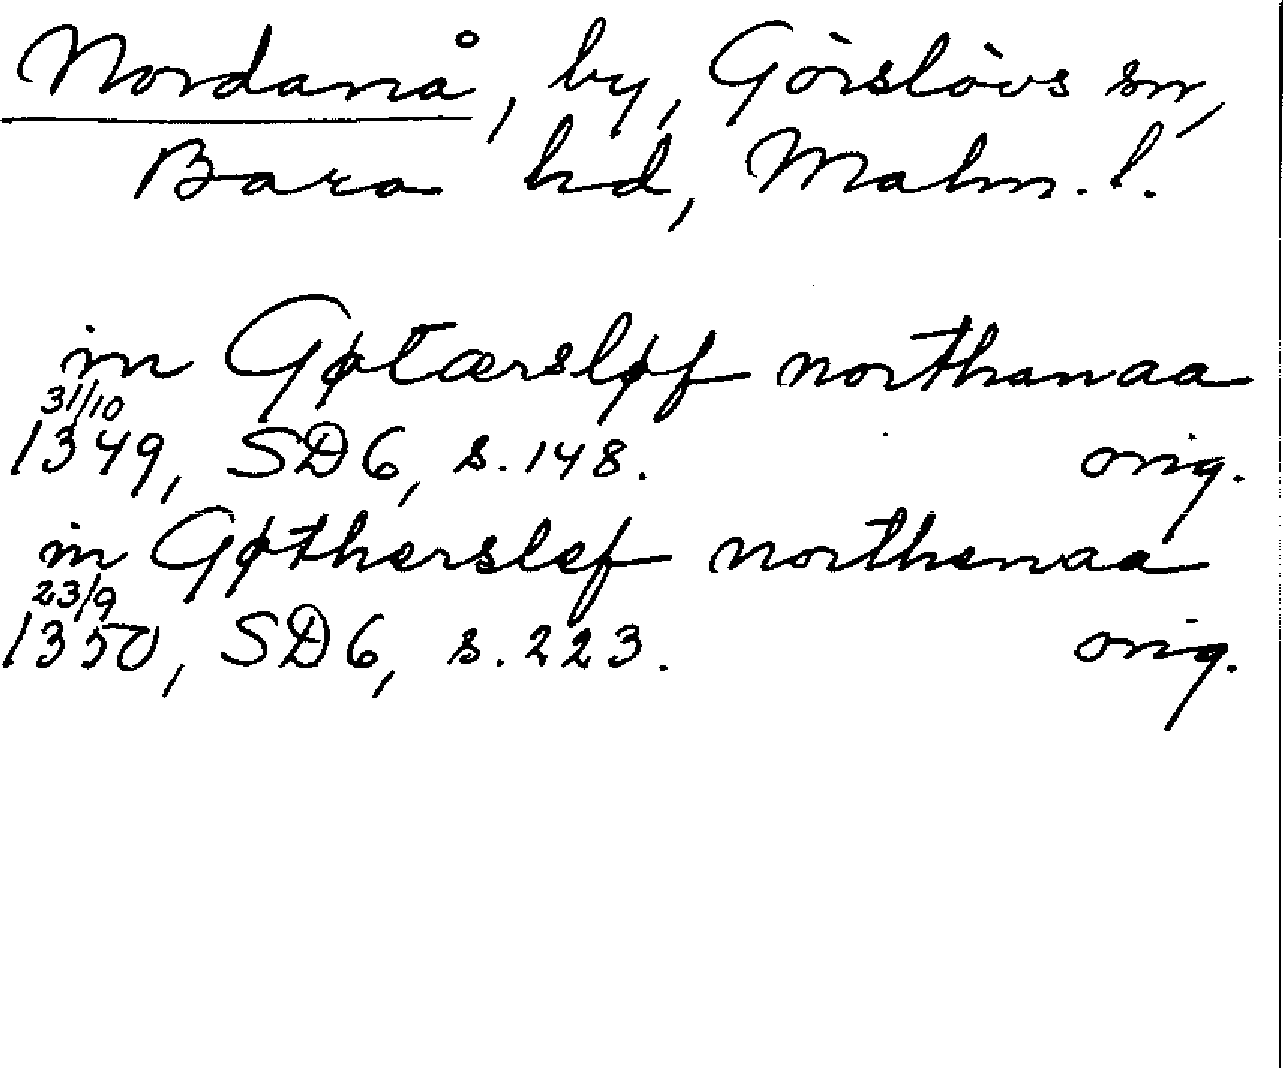 Nordanå, by, Görslövs sn,
Bara hd, Malm. l.
in Gøtærsløf northanaa
31/10
1349, SD6, s. 148. orig.
in Gøtherslef northenaa
23/9
1350, SD6, s. 223. orig.